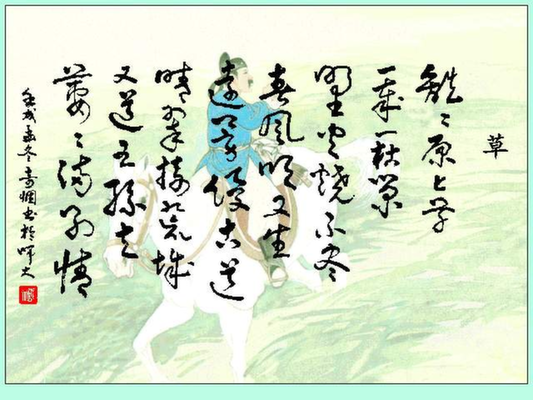 草
離〻原上草
一歲一枯榮
野火燒不尽
春風吹又生
遠芳侵古道
晴翠接荒城
又送王孫去
萋〻滿別情
壬戌孟冬